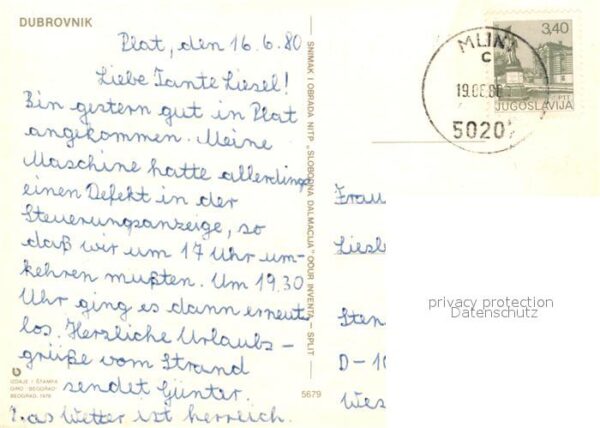 DUBROVNIK
Plat, den 16.6.80
Liebe Tante Liesel!
Bin gestern gut in Plat
angekommen. Meine
Maschine hatte allerdings
einen Defekt in der
Steuerungsanzeige, so
daß wir um 17 Uhr um-
kehren mußten. Um 19.30
Uhr ging es dann erneut
los. Herzliche Urlaubs-
grüße vom Strand
sendet Günter.
Das Wetter ist herrlich.
IZDAJE I ŠTAMPA
GIRO BEOGRAD
BEOGRAD, 1979
5679
SNIMAK I OBRADA NITP „SLOBODNA DALMACIJA" OOUR INVENTA — SPLIT
MLINI
C
19.06.80
50207
3,40
PTT
JUGOSLAVIJA
Frau
Liesl
Sten
D-10
Wes
privacy protection
Datenschutz